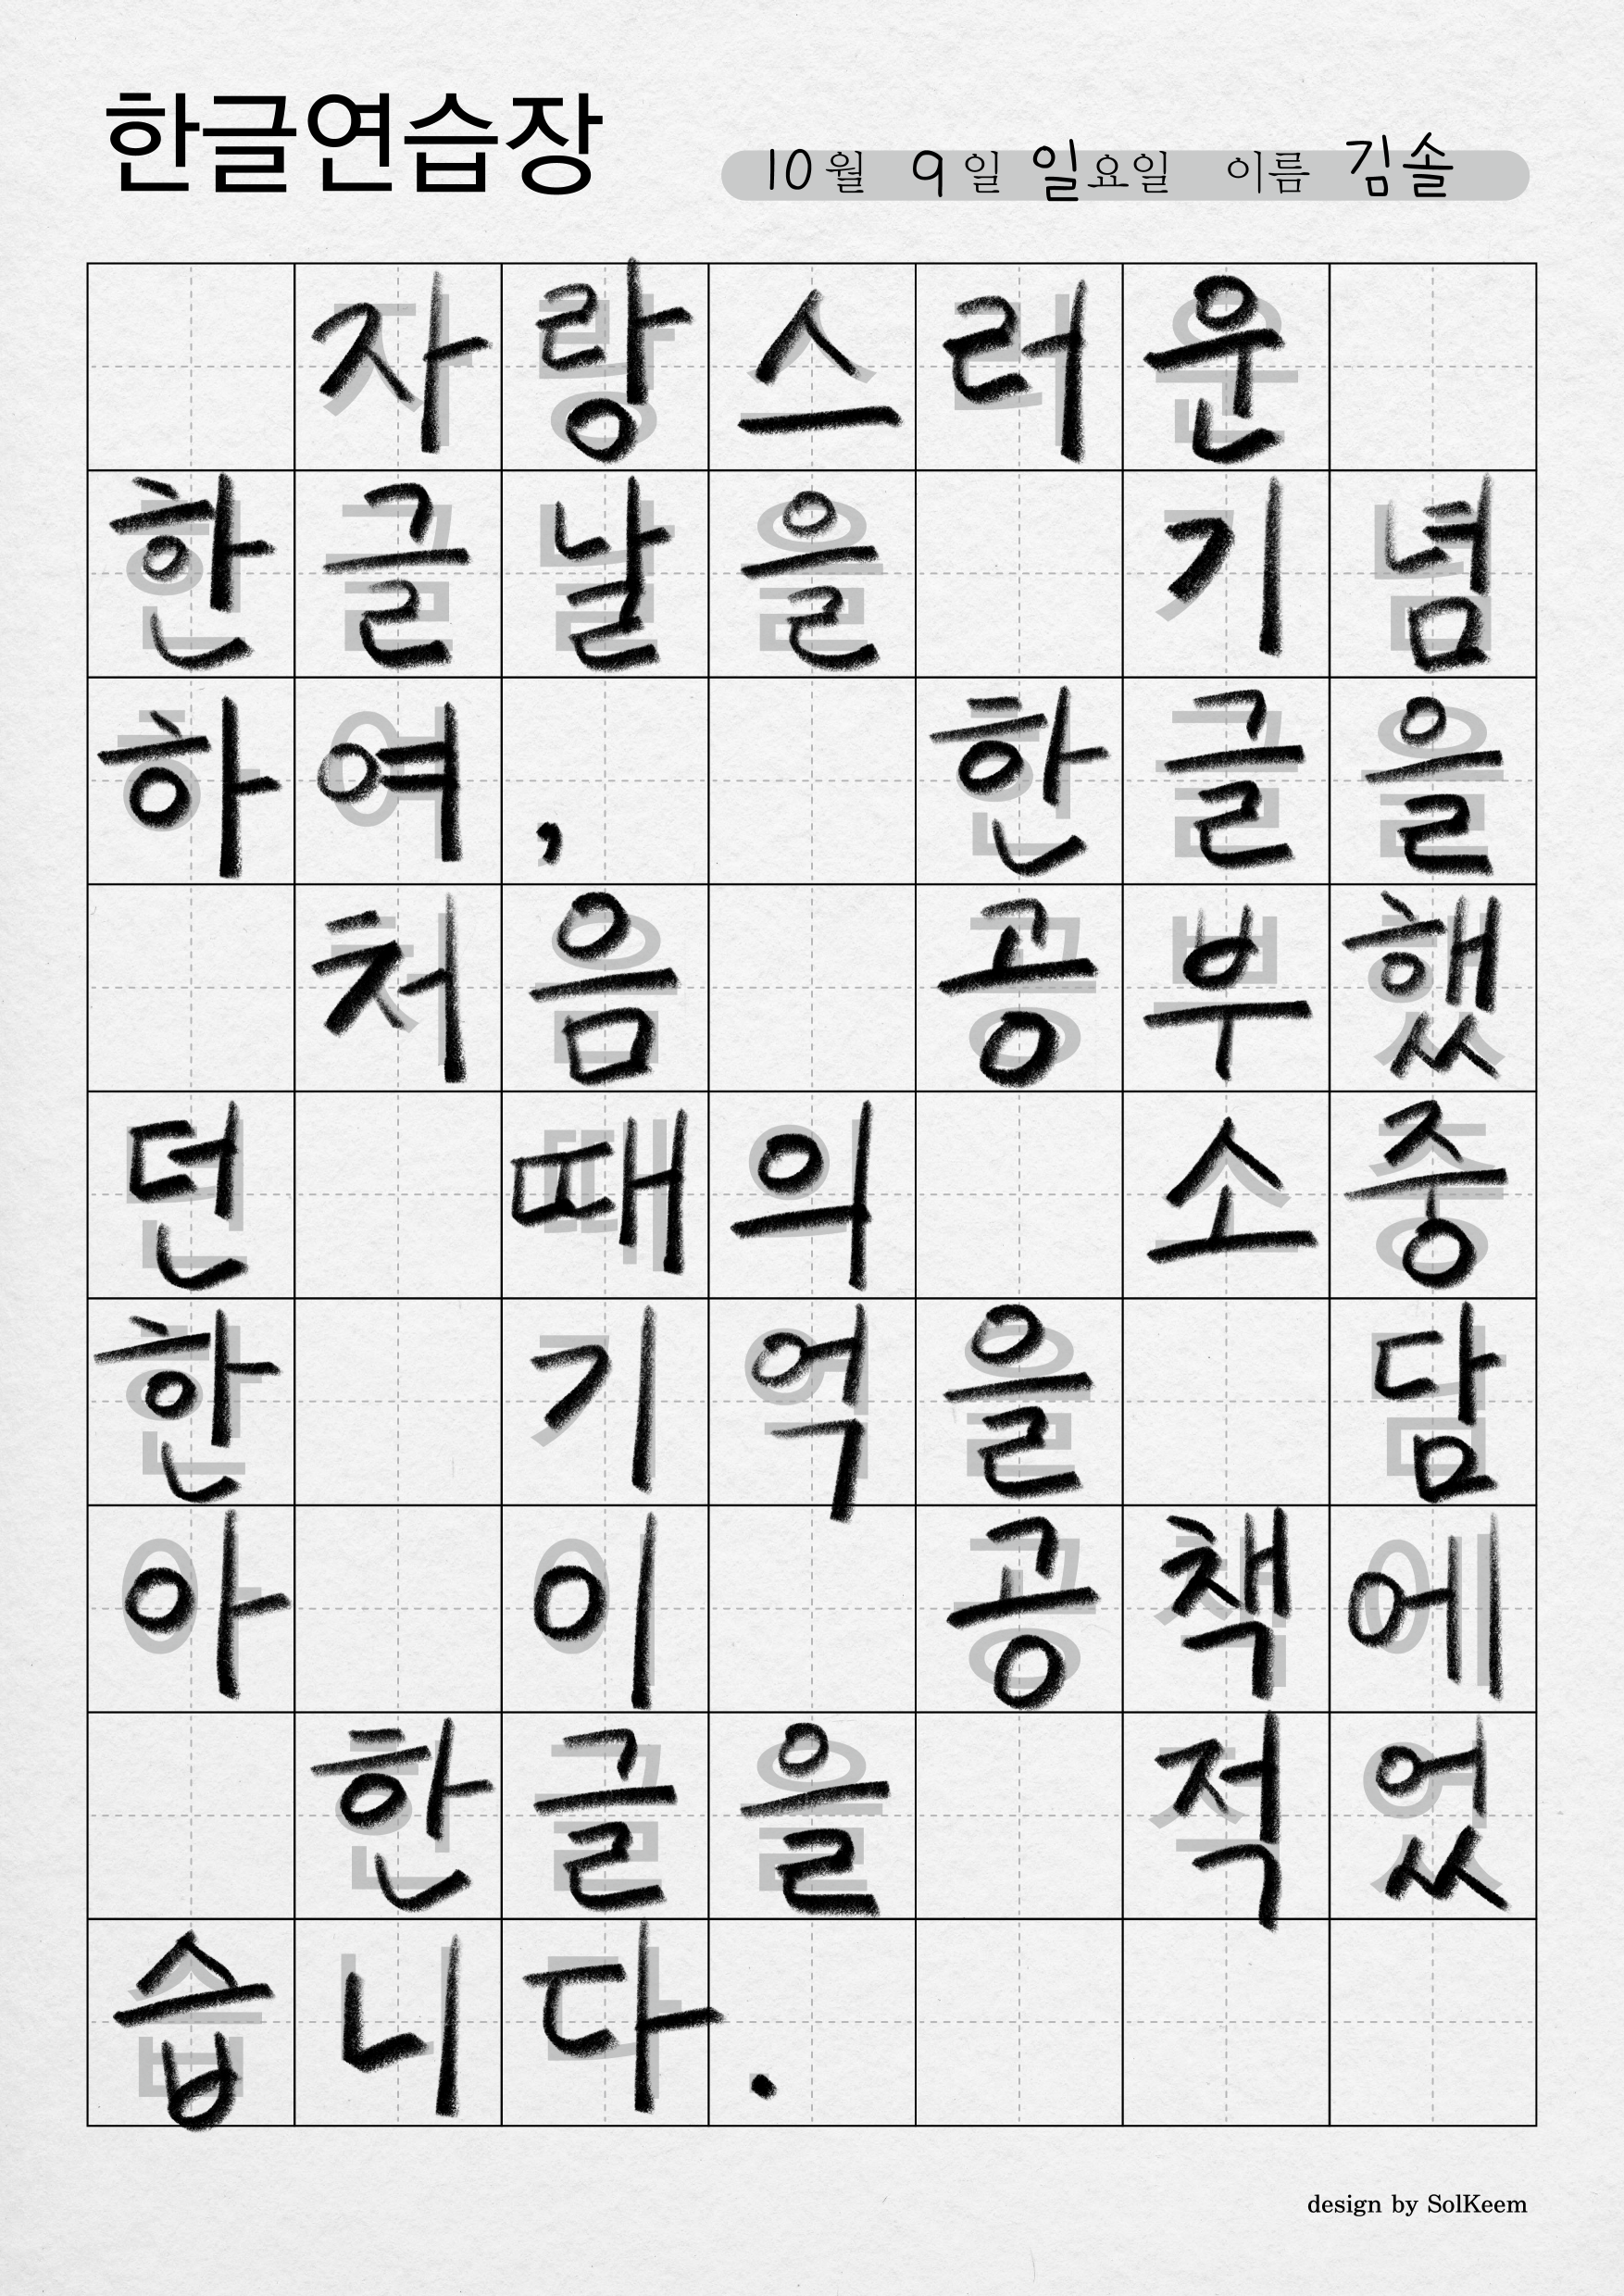 한글연습장
10월 9일 일요일 이름 김솔
자랑스러운
한글날을 기념
하여, 한글을
처음 공부했
던 때의 소중
한 기억을 담
아 이 공책에
한글을 적었
습니다.
design by SolKeem